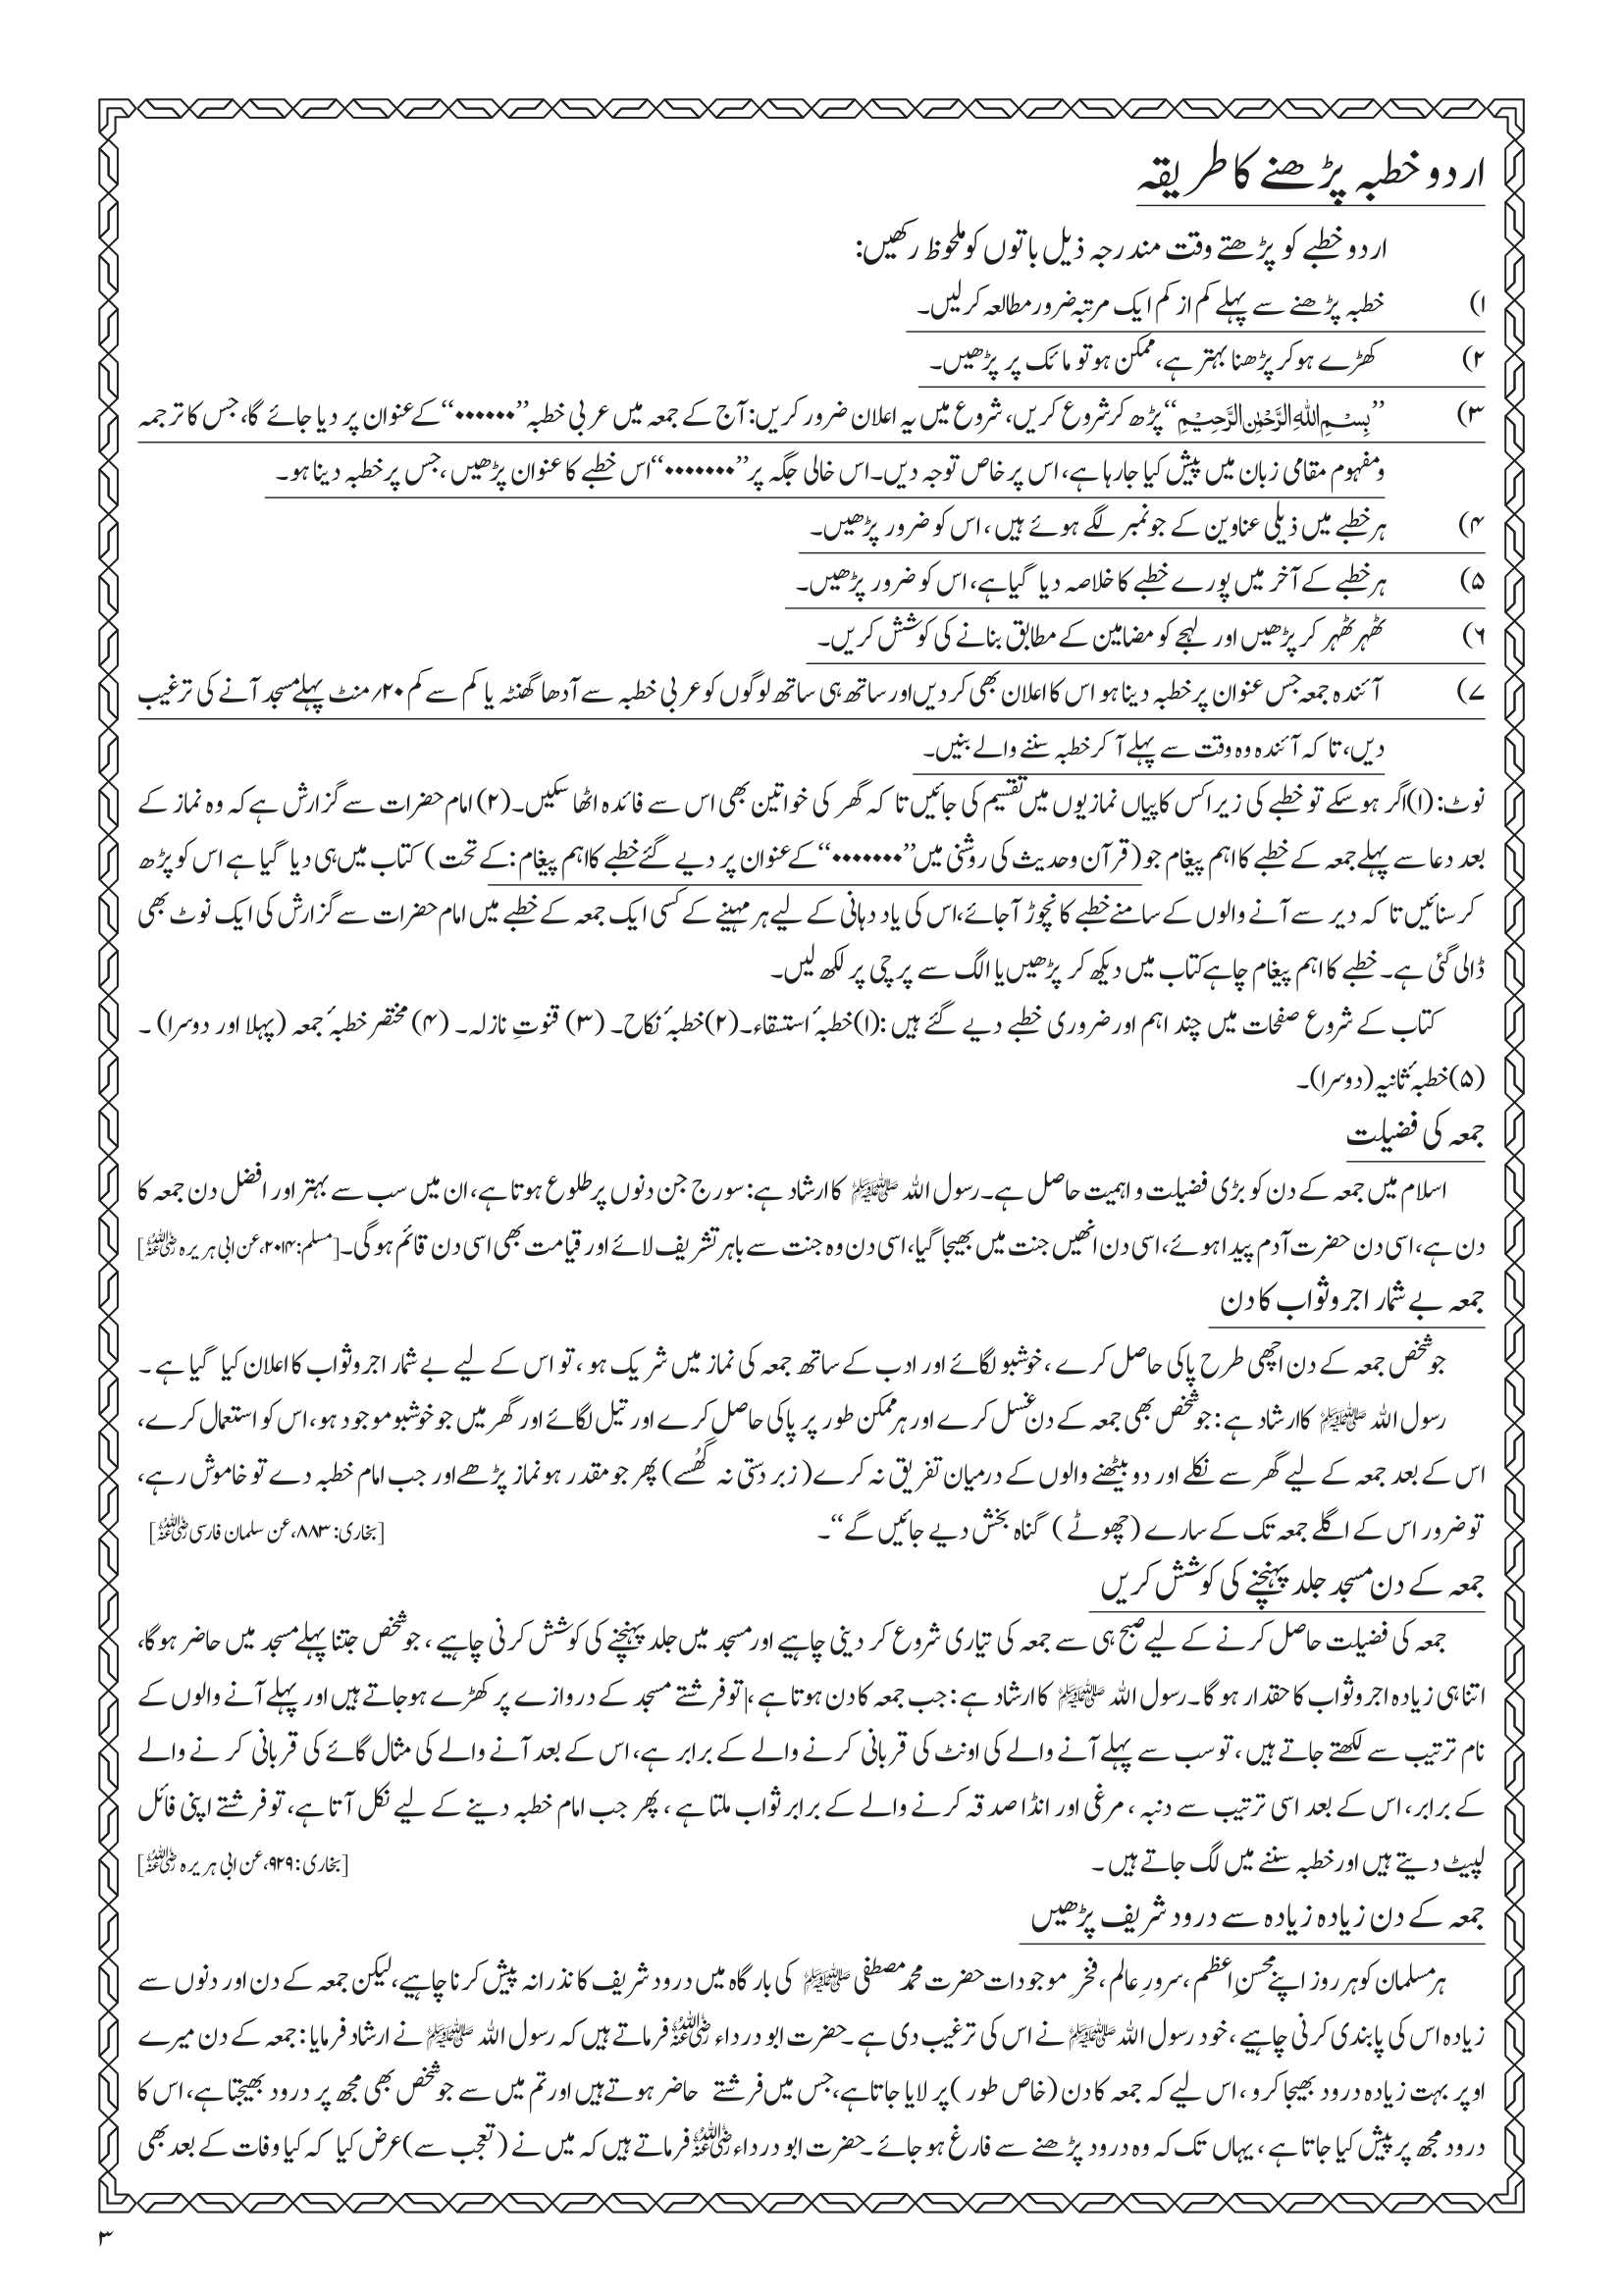 اردو خطبہ پڑھنے کا طریقہ
اردو خطبے کو پڑھتے وقت مندرجہ ذیل باتوں کو ملحوظ رکھیں:
۱) خطبہ پڑھنے سے پہلے کم از کم ایک مرتبہ ضرور مطالعہ کرلیں۔
۲) کھڑے ہوکر پڑھنا بہتر ہے، ممکن ہو تو مائک پر پڑھیں۔
۳) ”بِسْمِ اللهِ الرَّحْمٰنِ الرَّحِيْمِ“ پڑھ کر شروع کریں، شروع میں یہ اعلان ضرور کریں: آج کے جمعہ میں عربی خطبہ ”۰۰۰۰۰۰“ کے عنوان پر دیا جائے گا، جس کا ترجمہ
ومفہوم مقامی زبان میں پیش کیا جارہا ہے، اس پر خاص توجہ دیں۔ اس خالی جگہ پر ”۰۰۰۰۰۰۰“ اس خطبے کا عنوان پڑھیں، جس پر خطبہ دینا ہو۔
۴) ہر خطبے میں ذیلی عناوین کے جو نمبر لگے ہوئے ہیں، اس کو ضرور پڑھیں۔
۵) ہر خطبے کے آخر میں پورے خطبے کا خلاصہ دیا گیا ہے، اس کو ضرور پڑھیں۔
۶) ٹھہر ٹھہر کر پڑھیں اور لہجے کو مضامین کے مطابق بنانے کی کوشش کریں۔
۷) آئندہ جمعہ جس عنوان پر خطبہ دینا ہو اس کا اعلان بھی کردیں اور ساتھ ہی ساتھ لوگوں کو عربی خطبہ سے آدھا گھنٹہ یا کم سے کم ۲۰؍ منٹ پہلے مسجد آنے کی ترغیب
دیں، تاکہ آئندہ وہ وقت سے پہلے آکر خطبہ سننے والے بنیں۔
نوٹ: (۱) اگر ہوسکے تو خطبے کی زیراکس کاپیاں نمازیوں میں تقسیم کی جائیں تاکہ گھر کی خواتین بھی اس سے فائدہ اٹھا سکیں۔ (۲) امام حضرات سے گزارش ہے کہ وہ نماز کے
بعد دعا سے پہلے جمعہ کے خطبے کا اہم پیغام جو (قرآن وحدیث کی روشنی میں ”۰۰۰۰۰۰۰“ کے عنوان پر دیے گئے خطبے کا اہم پیغام: کے تحت) کتاب میں ہی دیا گیا ہے اس کو پڑھ
کر سنائیں تاکہ دیر سے آنے والوں کے سامنے خطبے کا نچوڑ آجائے، اس کی یاد دہانی کے لیے ہر مہینے کے کسی ایک جمعہ کے خطبے میں امام حضرات سے گزارش کی ایک نوٹ بھی
ڈالی گئی ہے۔ خطبے کا اہم پیغام چاہے کتاب میں دیکھ کر پڑھیں یا الگ سے پرچی پر لکھ لیں۔
کتاب کے شروع صفحات میں چند اہم اور ضروری خطبے دیے گئے ہیں: (۱) خطبۂ استسقاء۔ (۲) خطبۂ نکاح۔ (۳) قنوتِ نازلہ۔ (۴) مختصر خطبۂ جمعہ (پہلا اور دوسرا)۔
(۵) خطبۂ ثانیہ (دوسرا)۔
جمعہ کی فضیلت
اسلام میں جمعہ کے دن کو بڑی فضیلت و اہمیت حاصل ہے۔ رسول اللہ ﷺ کا ارشاد ہے: سورج جن دنوں پر طلوع ہوتا ہے، ان میں سب سے بہتر اور افضل دن جمعہ کا
دن ہے، اسی دن حضرت آدم پیدا ہوئے، اسی دن انھیں جنت میں بھیجا گیا، اسی دن وہ جنت سے باہر تشریف لائے اور قیامت بھی اسی دن قائم ہوگی۔ [مسلم: ۲۰۱۴، عن ابی ہریرہ رضی اللہ عنہ]
جمعہ بے شمار اجر وثواب کا دن
جو شخص جمعہ کے دن اچھی طرح پاکی حاصل کرے، خوشبو لگائے اور ادب کے ساتھ جمعہ کی نماز میں شریک ہو، تو اس کے لیے بے شمار اجر وثواب کا اعلان کیا گیا ہے۔
رسول اللہ ﷺ کا ارشاد ہے: جو شخص بھی جمعہ کے دن غسل کرے اور ہر ممکن طور پر پاکی حاصل کرے اور تیل لگائے اور گھر میں جو خوشبو موجود ہو، اس کو استعمال کرے،
اس کے بعد جمعہ کے لیے گھر سے نکلے اور دو بیٹھنے والوں کے درمیان تفریق نہ کرے (زبردستی نہ گھُسے) پھر جو مقدر ہو نماز پڑھے اور جب امام خطبہ دے تو خاموش رہے،
تو ضرور اس کے اگلے جمعہ تک کے سارے (چھوٹے) گناہ بخش دیے جائیں گے“۔ [بخاری: ۸۸۳، عن سلمان فارسی رضی اللہ عنہ]
جمعہ کے دن مسجد جلد پہنچنے کی کوشش کریں
جمعہ کی فضیلت حاصل کرنے کے لیے صبح ہی سے جمعہ کی تیاری شروع کردینی چاہیے اور مسجد میں جلد پہنچنے کی کوشش کرنی چاہیے، جو شخص جتنا پہلے مسجد میں حاضر ہوگا،
اتنا ہی زیادہ اجر وثواب کا حقدار ہوگا۔ رسول اللہ ﷺ کا ارشاد ہے: جب جمعہ کا دن ہوتا ہے، تو فرشتے مسجد کے دروازے پر کھڑے ہوجاتے ہیں اور پہلے آنے والوں کے
نام ترتیب سے لکھتے جاتے ہیں، تو سب سے پہلے آنے والے کی اونٹ کی قربانی کرنے والے کے برابر ہے، اس کے بعد آنے والے کی مثال گائے کی قربانی کرنے والے
کے برابر، اس کے بعد اسی ترتیب سے دنبہ، مرغی اور انڈا صدقہ کرنے والے کے برابر ثواب ملتا ہے، پھر جب امام خطبہ دینے کے لیے نکل آتا ہے، تو فرشتے اپنی فائل
لپیٹ دیتے ہیں اور خطبہ سننے میں لگ جاتے ہیں۔ [بخاری: ۹۲۹، عن ابی ہریرہ رضی اللہ عنہ]
جمعہ کے دن زیادہ زیادہ سے درود شریف پڑھیں
ہر مسلمان کو ہر روز اپنے محسنِ اعظم، سرورِ عالم، فخرِ موجودات حضرت محمد مصطفی ﷺ کی بارگاہ میں درود شریف کا نذرانہ پیش کرنا چاہیے، لیکن جمعہ کے دن اور دنوں سے
زیادہ اس کی پابندی کرنی چاہیے، خود رسول اللہ ﷺ نے اس کی ترغیب دی ہے۔ حضرت ابو درداء رضی اللہ عنہ فرماتے ہیں کہ رسول اللہ ﷺ نے ارشاد فرمایا: جمعہ کے دن میرے
اوپر بہت زیادہ درود بھیجا کرو، اس لیے کہ جمعہ کا دن (خاص طور) پر لایا جاتا ہے، جس میں فرشتے حاضر ہوتے ہیں اور تم میں سے جو شخص بھی مجھ پر درود بھیجتا ہے، اس کا
درود مجھ پر پیش کیا جاتا ہے، یہاں تک کہ وہ درود پڑھنے سے فارغ ہوجائے۔ حضرت ابو درداء رضی اللہ عنہ فرماتے ہیں کہ میں نے (تعجب سے) عرض کیا کہ کیا وفات کے بعد بھی
۳